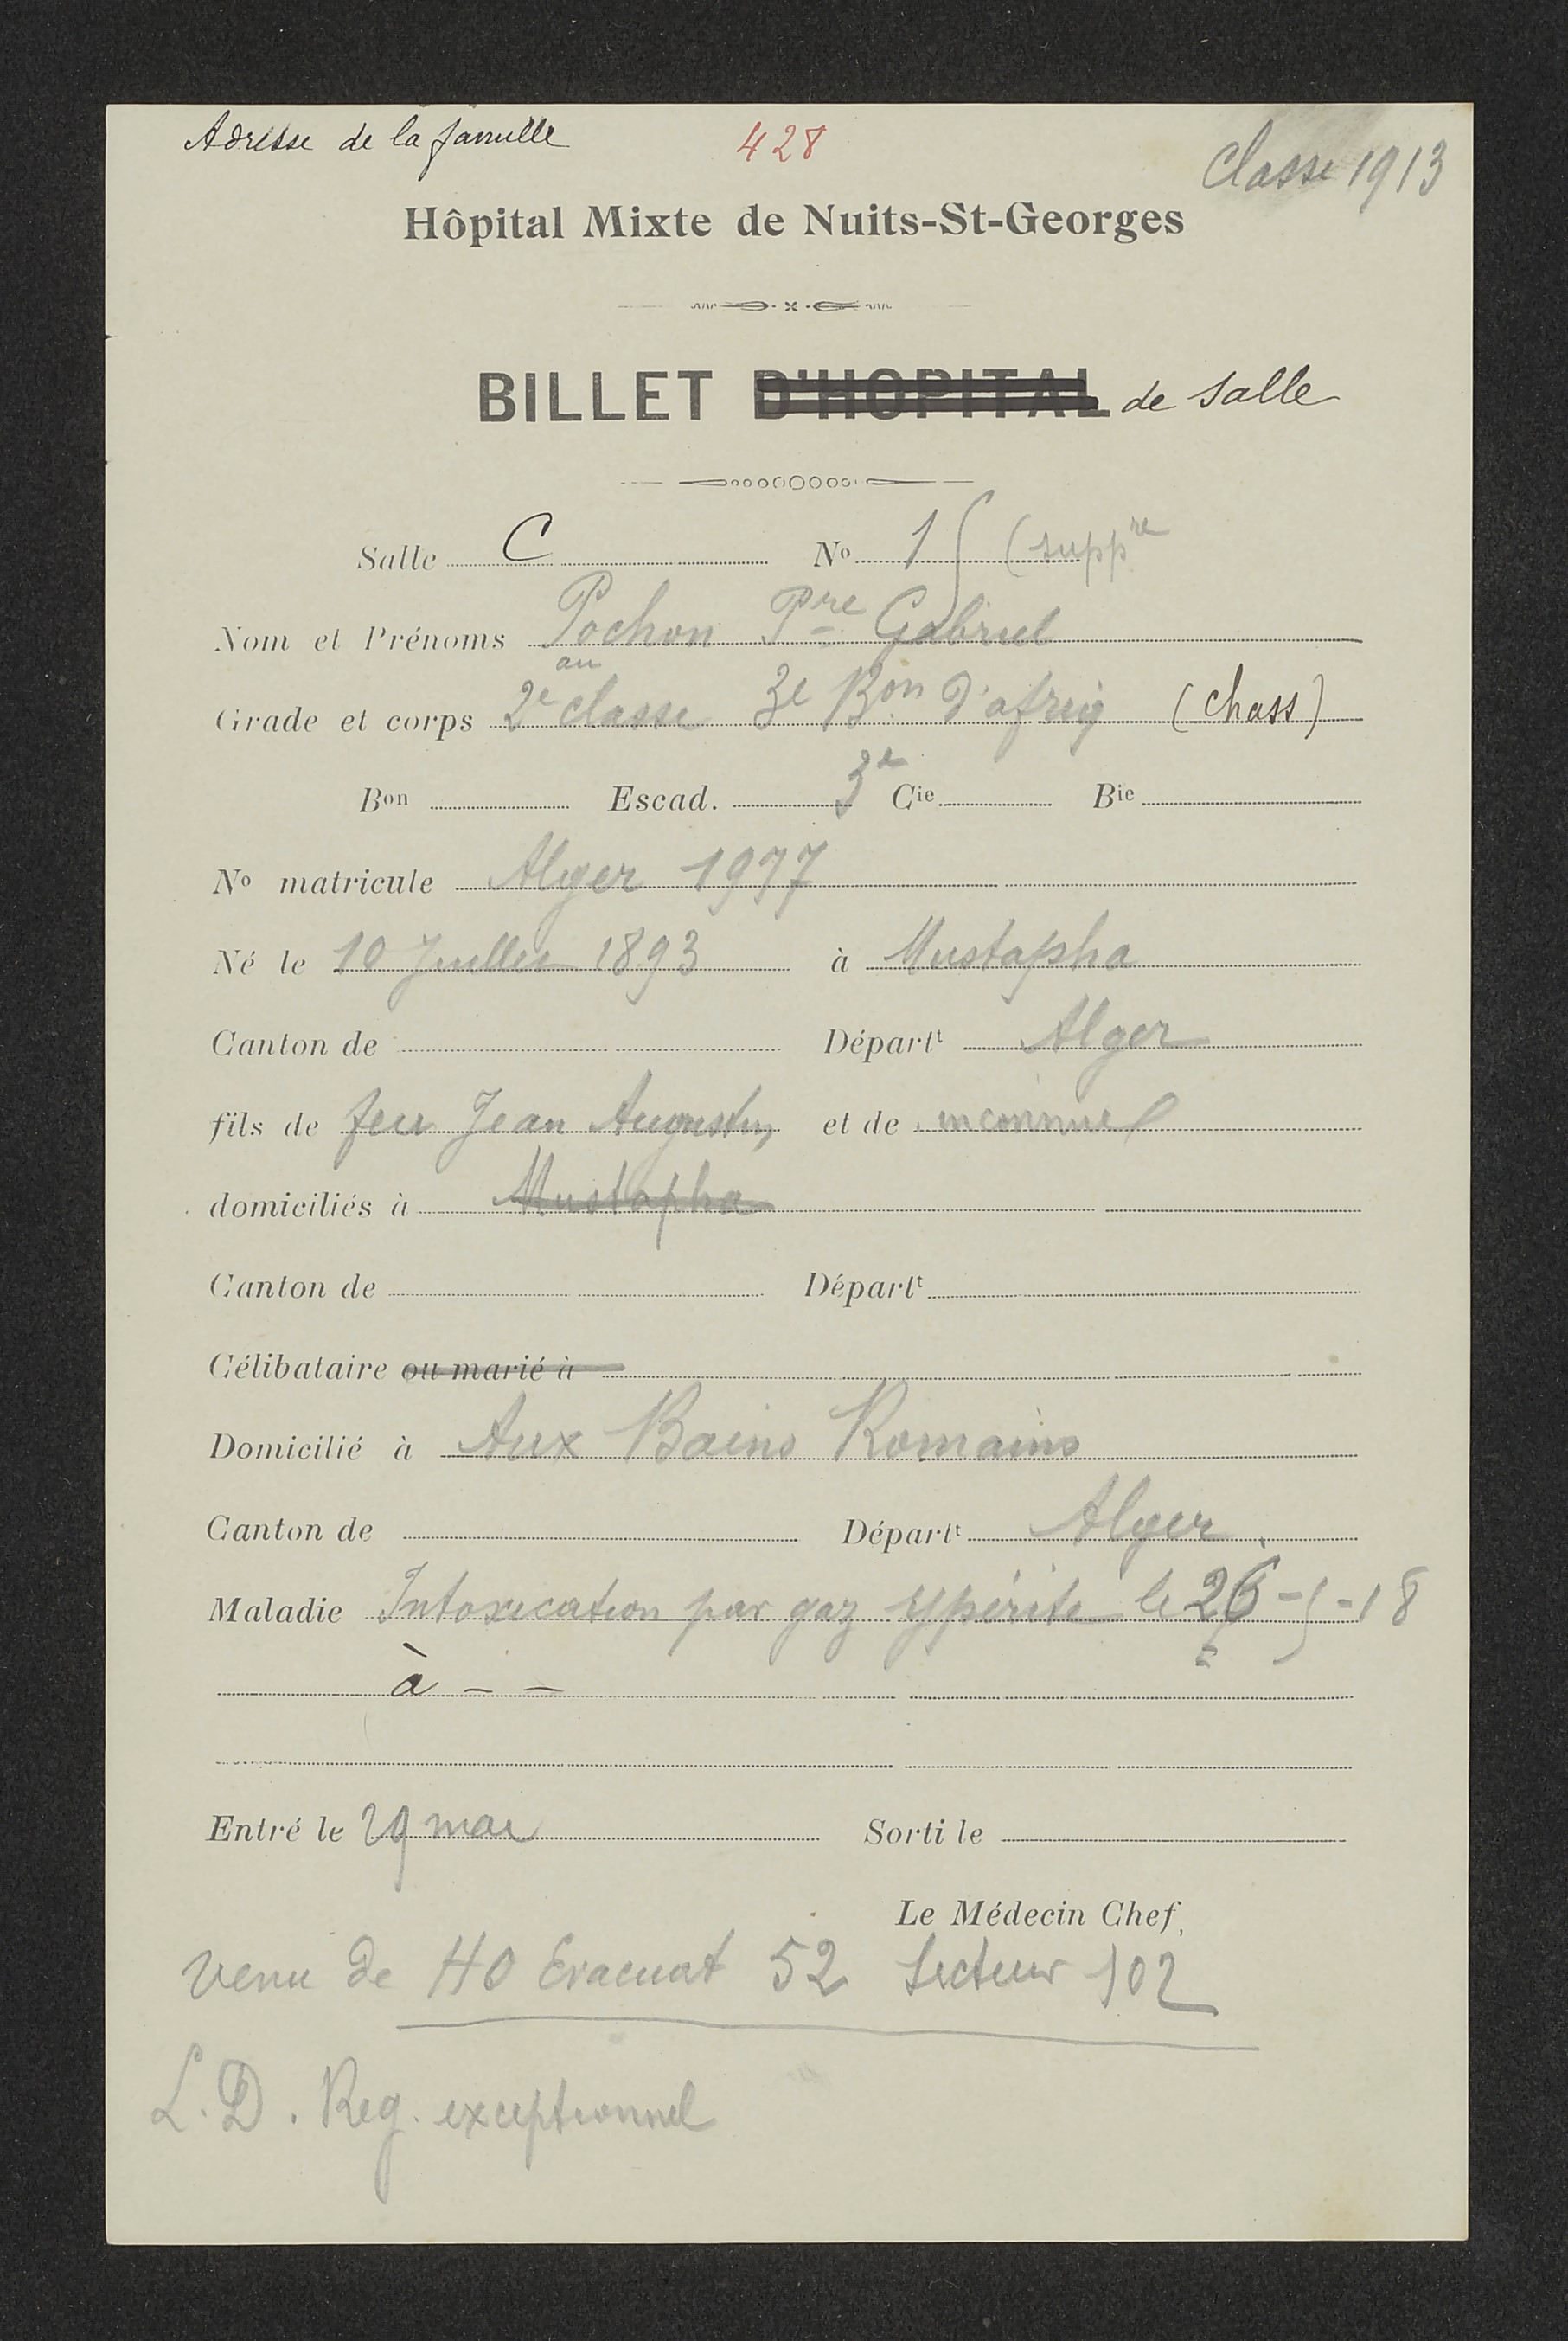 Adresse de la famille 428 Classe 1913
Hôpital Mixte de Nuits-St-Georges
BILLET D'HOPITAL de salle
Salle C No 15 (suppre
Nom et Prénoms Pochon Pre Gabriel
au
Grade et corps 2e classe 3e Bon d'afriq (chass)
Bon Escad. 3e Cie Bie
No matricule Alger 1977
Né le 10 Juillet 1893 à Mustapha
Canton de Départt Alger
fils de feu Jean Augustin et de inconnue
domiciliés à Mustapha
Canton de Départt
Célibataire ou marié à
Domicilié à Aux Bains Romains
Canton de Départt Alger
Maladie Intoxication par gaz ypérite le 26-5-18
à - -
Entré le 29 mai Sorti le
Le Médecin Chef,
Venu de HO Evacuat 52 Secteur 102
L. D. Reg. exceptionnel